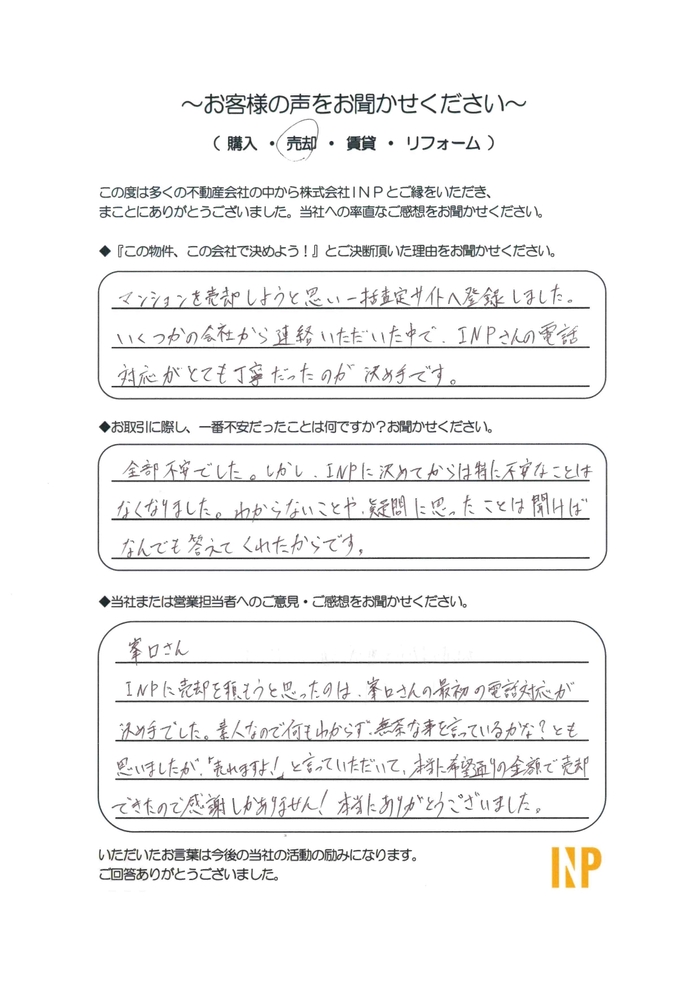 ～お客様の声をお聞かせください～
（ 購入 ・ 売却 ・ 賃貸 ・ リフォーム ）
この度は多くの不動産会社の中から株式会社ＩＮＰとご縁をいただき、
まことにありがとうございました。当社への率直なご感想をお聞かせください。
◆『この物件、この会社で決めよう！』とご決断頂いた理由をお聞かせください。
マンションを売却しようと思い一括査定サイトへ登録しました。
いくつかの会社から連絡いただいた中で、INPさんの電話
対応がとても丁寧だったのが決め手です。
◆お取引に際し、一番不安だったことは何ですか？お聞かせください。
全部不安でした。しかし、INPに決めてからは特に不安なことは
なくなりました。わからないことや、疑問に思ったことは聞けば
なんでも答えてくれたからです。
◆当社または営業担当者へのご意見・ご感想をお聞かせください。
峯口さん
INPに売却を頼もうと思ったのは、峯口さんの最初の電話対応が
決め手でした。素人なので何もわからず、無茶な事を言っているかな？とも
思いましたが、「売れますよ！」と言っていただいて、本当に希望通りの金額で売却
できたので感謝しかありません！本当にありがとうございました。
いただいたお言葉は今後の当社の活動の励みになります。
ご回答ありがとうございました。
INP